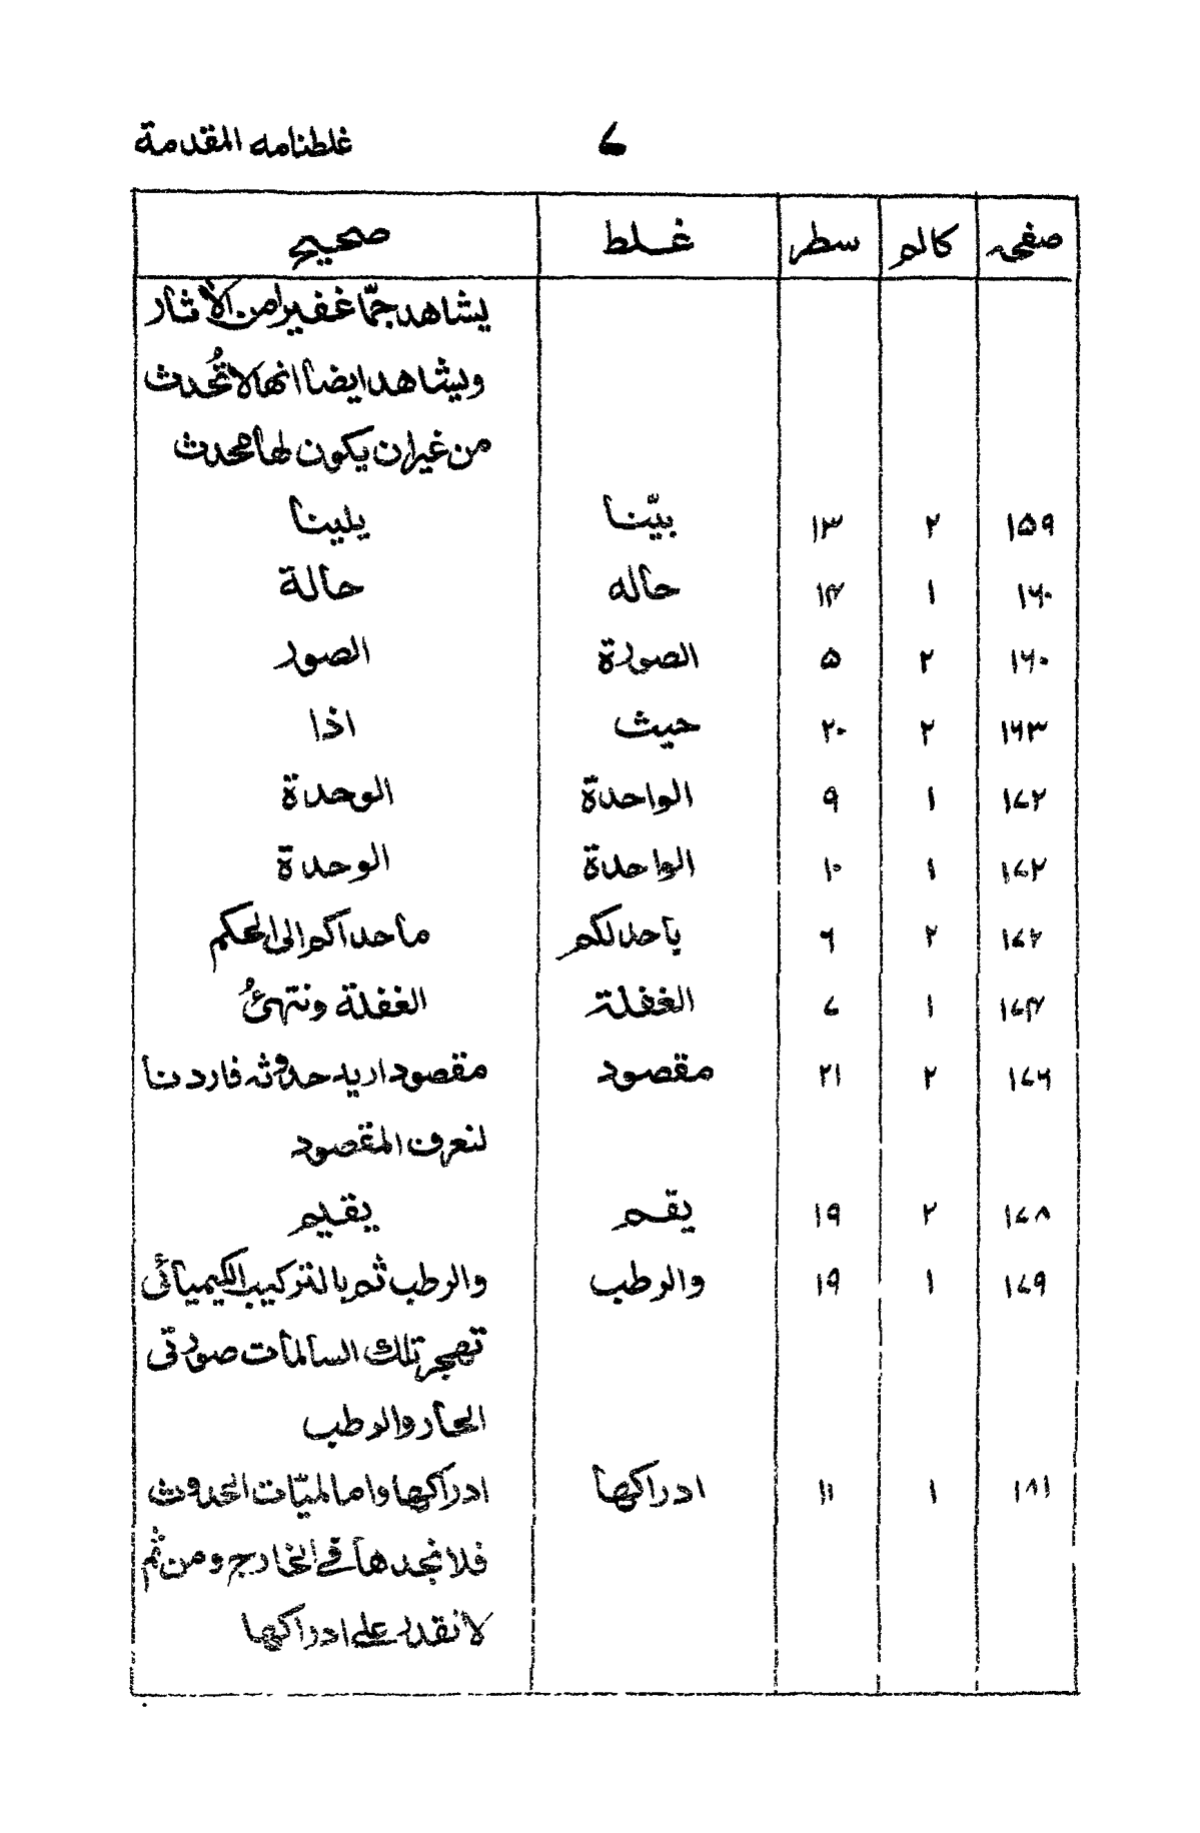 غلطنامه المقدمة ۷
صفحہ کالم سطر غلط صحیح
یشاهد جمّا غفیرا من الأثار
ویشاهد ایضا انها لا تُحدث
من غیر ان یکون لها محدث
۱۵۹ ۲ ۱۳ بیّنا یلینا
۱۶۰ ۱ ۱۴ حاله حالة
۱۶۰ ۲ ۵ الصورة الصور
۱۶۳ ۲ ۲۰ حیث اذا
۱۷۲ ۱ ۹ الواحدة الوحدة
۱۷۲ ۱ ۱۰ الواحدة الوحدة
۱۷۲ ۲ ۶ باحدلکم ماحداکم الی الحکم
۱۷۴ ۱ ۷ الغفلة الغفلة ونتهئُ
۱۷۶ ۲ ۲۱ مقصود مقصود ارید حدوثه فاردنا
لنعرف المقصود
۱۷۸ ۲ ۱۹ یقم یقیم
۱۷۹ ۱ ۱۹ والرطب والرطب ثم بالترکیب الکیمیائی
تهجر تلك السالمات صورتی
الحار والرطب
۱۸۱ ۱ ۱۱ ادراکها ادراکها واما لمیّات الحدوث
فلا نجدها فی الخارج ومن ثُم
لا نقدر علی ادراکها